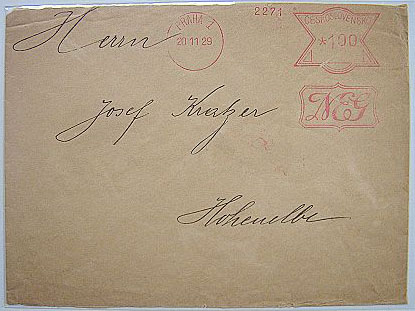 Herrn
PRAHA 1
20 11 29
2271
ČESKOSLOVENSKO
*100
Josef Kratzer
Hohenelbe